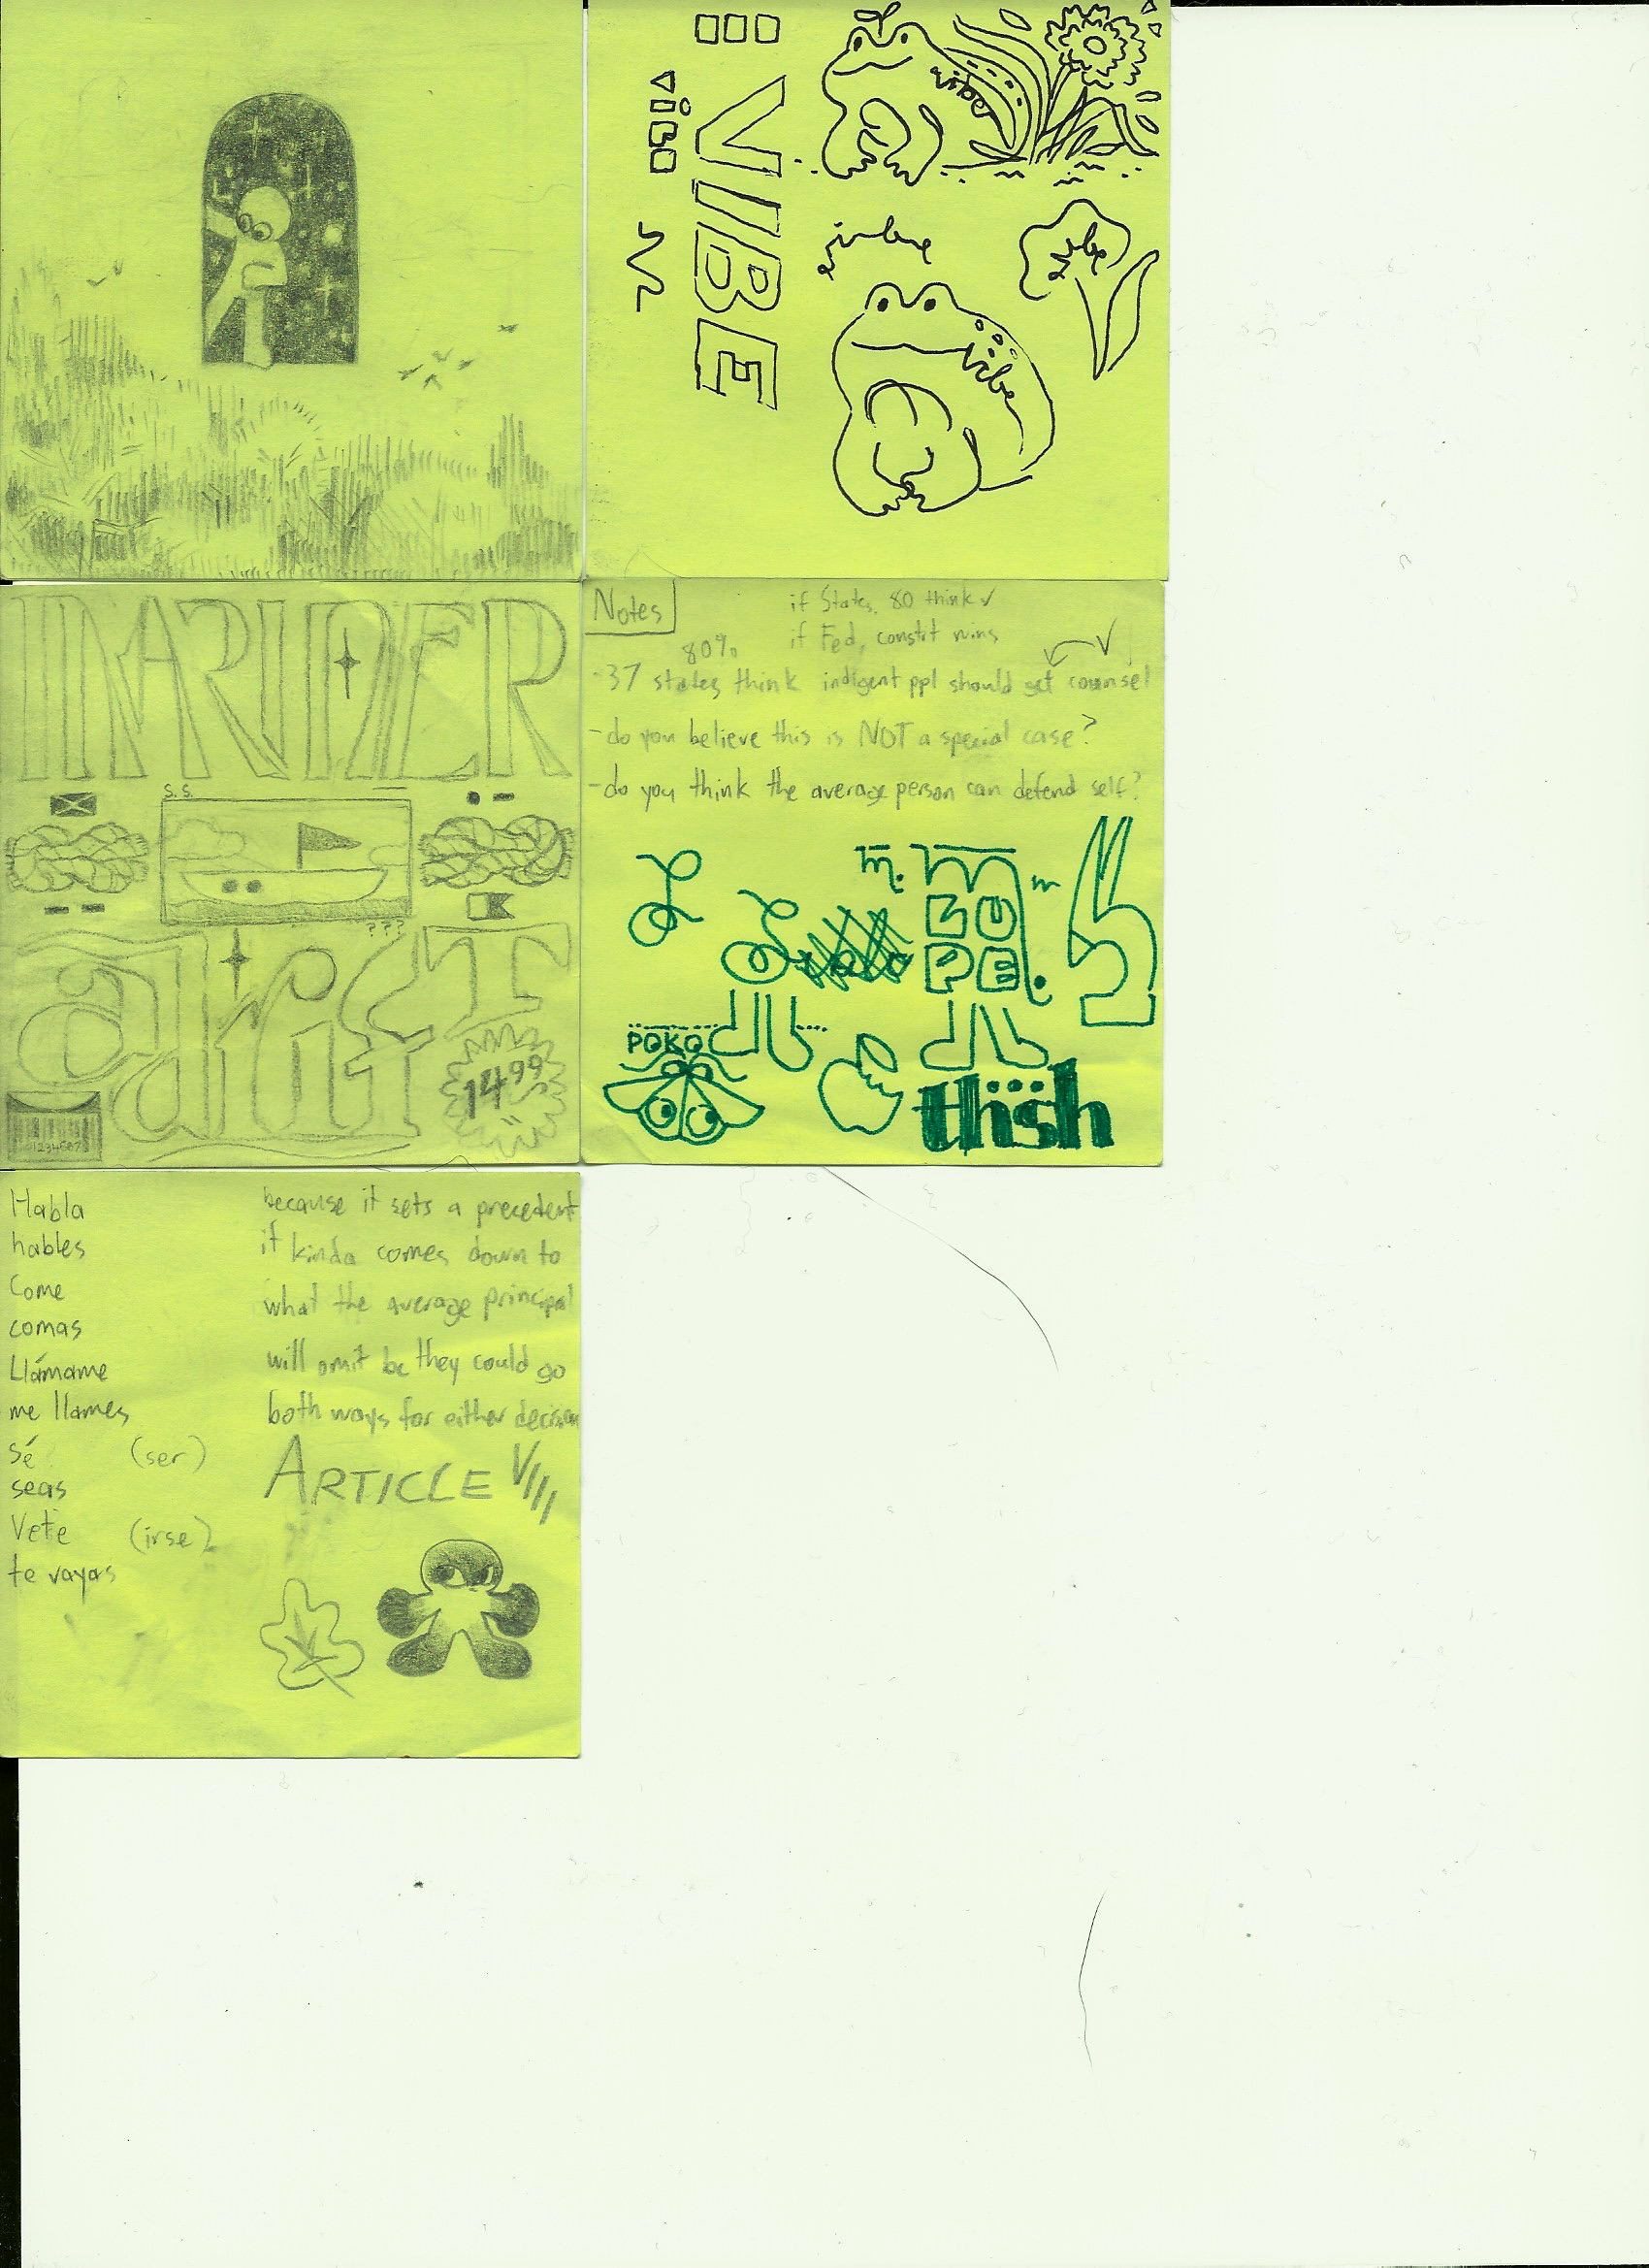 VIBE
vibe
vibe
vibe
vibe
MARINER
S.S.
???
14.99
1234567
Notes
if States, 80 think ✓
if Fed, constit wins
80%
-37 states think indigent ppl should get counsel
-do you believe this is NOT a special case?
-do you think the average person can defend self?
m.
m
LU
PE.
POKO
thish
Habla
hables
Come
comas
Llámame
me llames
Sé (ser)
seas
Vete (irse)
te vayas
because it sets a precedent
it kinda comes down to
what the average principal
will omit bc they could go
both ways for either decision
ARTICLE VIII